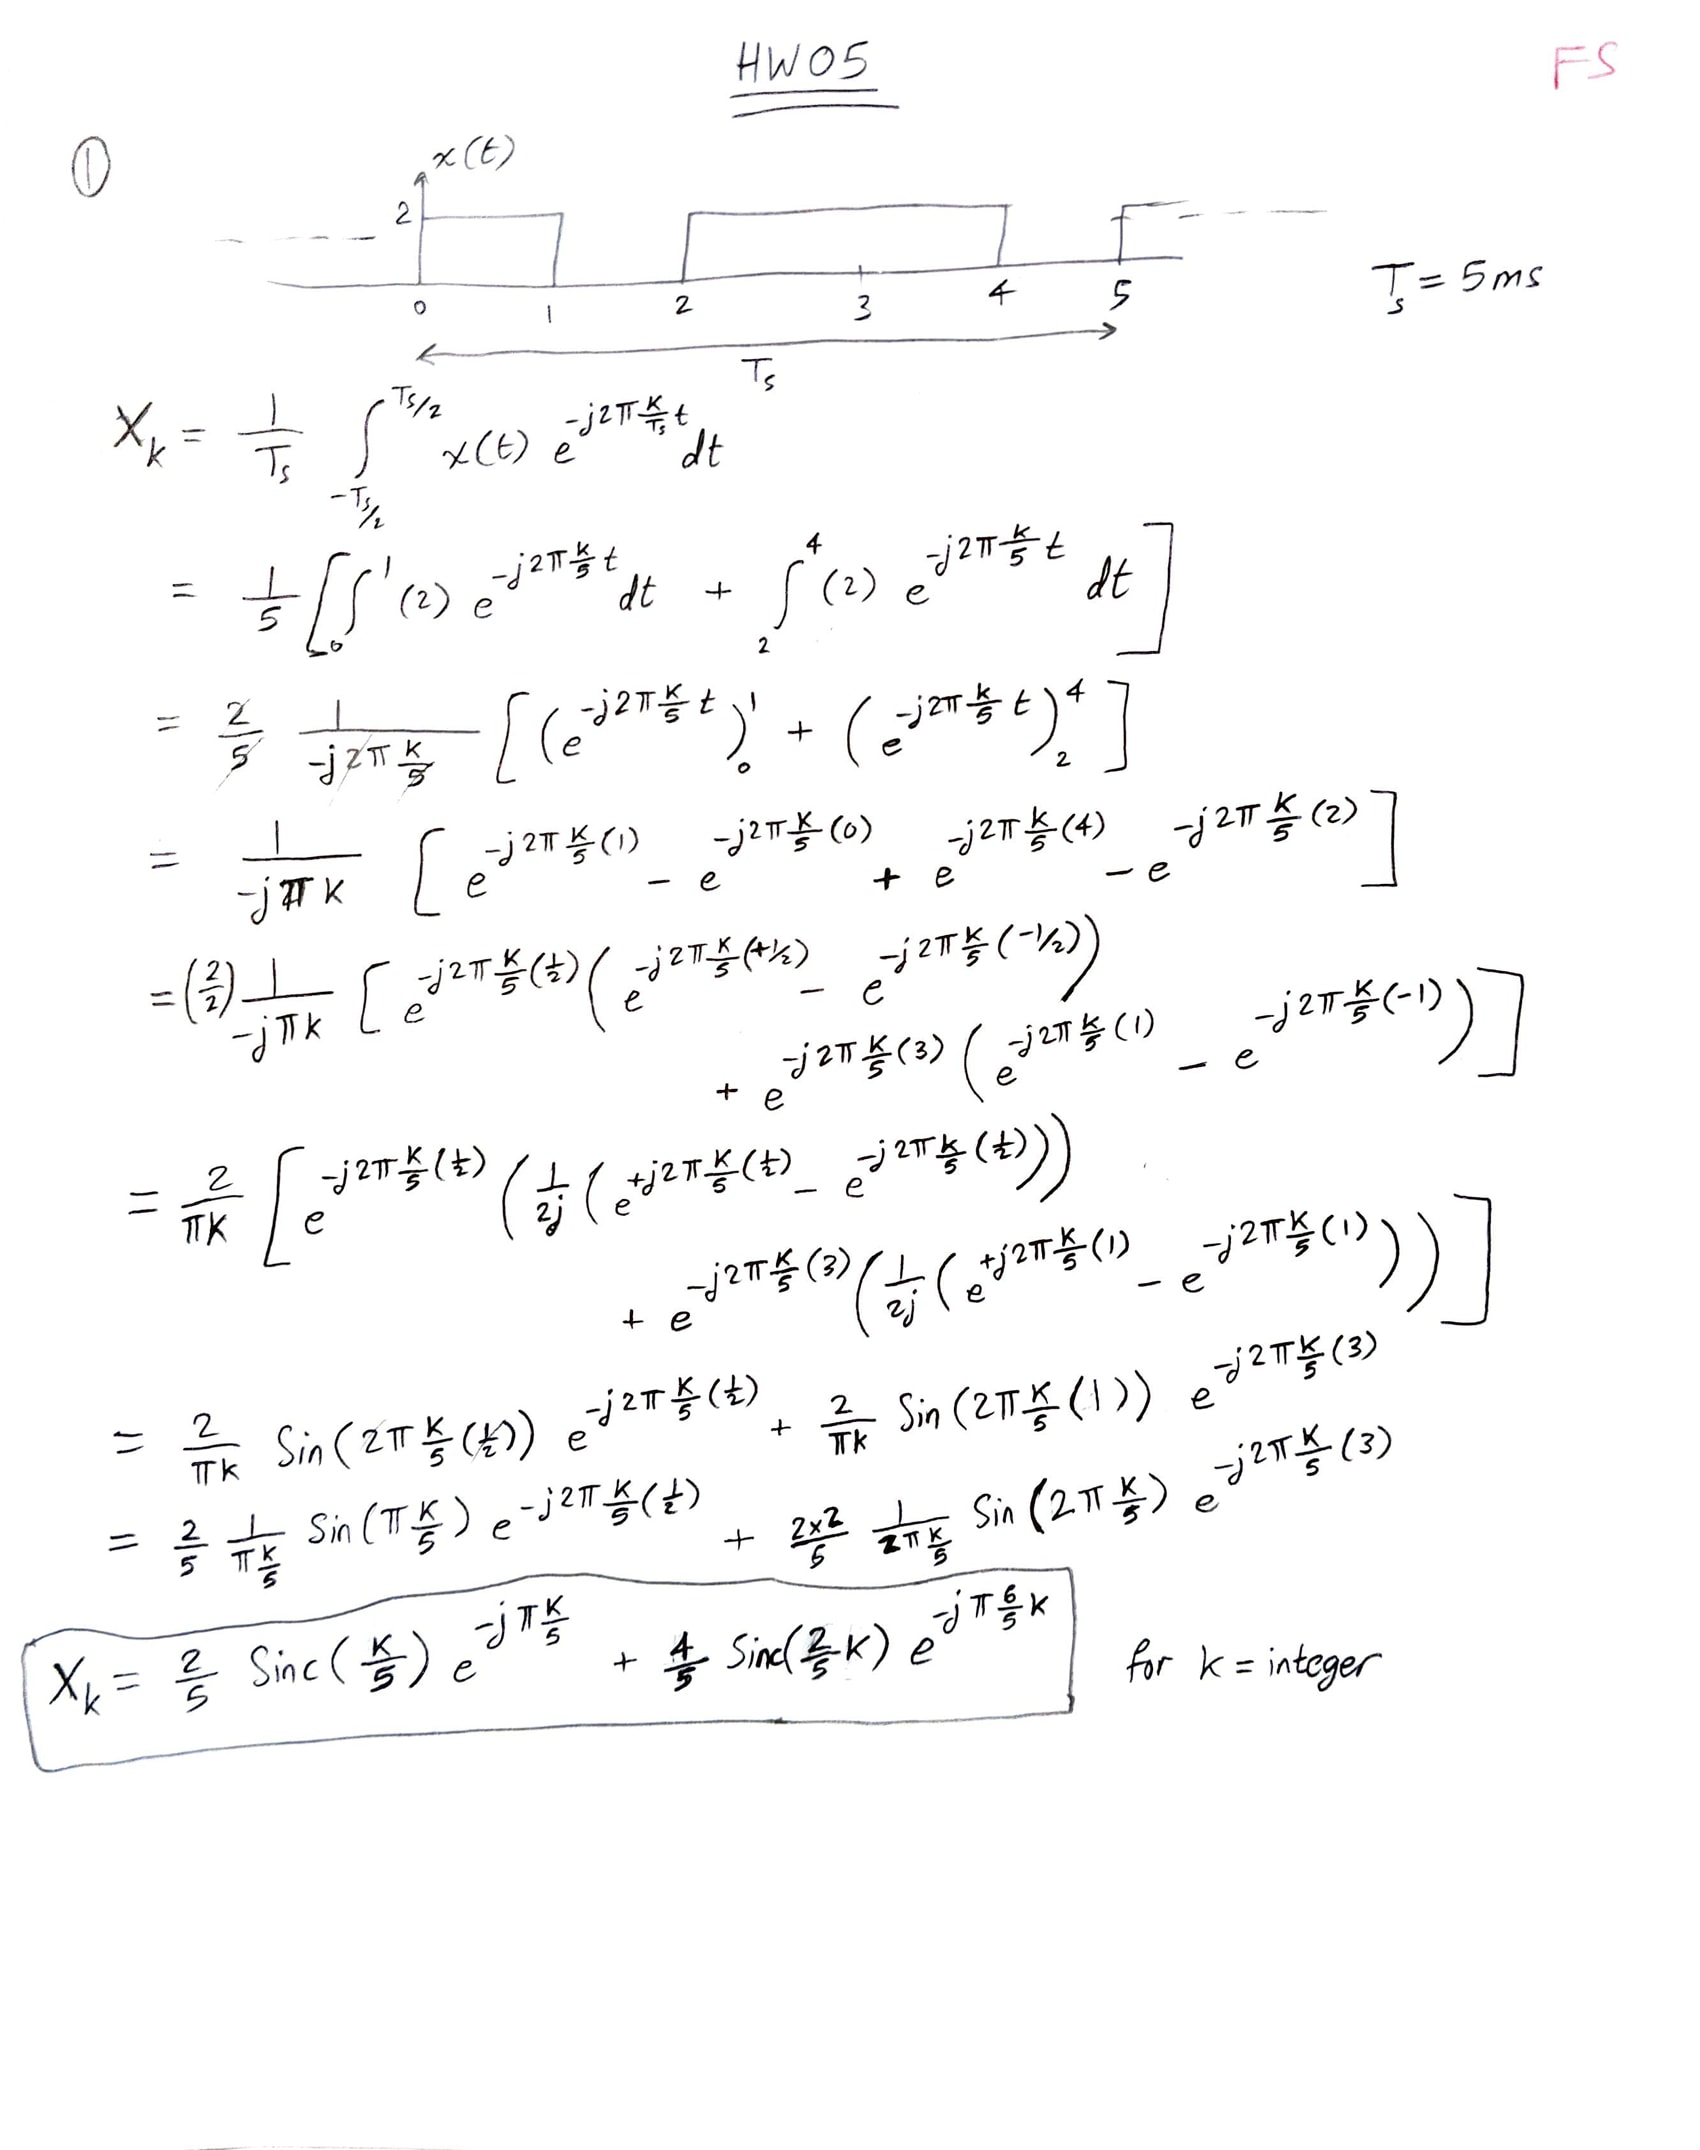 HW05
FS
①
x(t)
2
0 1 2 3 4 5
T_s = 5ms
T_s
X_k = 1/T_s ∫_{-T_s/2}^{T_s/2} x(t) e^{-j2π k/T_s t} dt
= 1/5 [ ∫_0^1 (2) e^{-j2π k/5 t} dt + ∫_2^4 (2) e^{-j2π k/5 t} dt ]
= 2/5 1/(-j2π k/5) [ (e^{-j2π k/5 t})_0^1 + (e^{-j2π k/5 t})_2^4 ]
= 1/(-jπk) [ e^{-j2π k/5 (1)} - e^{-j2π k/5 (0)} + e^{-j2π k/5 (4)} - e^{-j2π k/5 (2)} ]
= (2/2) 1/(-jπk) [ e^{-j2π k/5 (1/2)} ( e^{-j2π k/5 (+1/2)} - e^{-j2π k/5 (-1/2)} )
+ e^{-j2π k/5 (3)} ( e^{-j2π k/5 (1)} - e^{-j2π k/5 (-1)} ) ]
= 2/(πk) [ e^{-j2π k/5 (1/2)} ( 1/2j ( e^{+j2π k/5 (1/2)} - e^{-j2π k/5 (1/2)} ) )
+ e^{-j2π k/5 (3)} ( 1/2j ( e^{+j2π k/5 (1)} - e^{-j2π k/5 (1)} ) ) ]
= 2/(πk) Sin(2π k/5 (1/2)) e^{-j2π k/5 (1/2)} + 2/(πk) Sin(2π k/5 (1)) e^{-j2π k/5 (3)}
= 2/5 1/(π k/5) Sin(π k/5) e^{-j2π k/5 (1/2)} + 2x2/5 1/(2π k/5) Sin(2π k/5) e^{-j2π k/5 (3)}
X_k = 2/5 Sinc(k/5) e^{-jπ k/5} + 4/5 Sinc(2/5 k) e^{-jπ 6/5 k} for k = integer